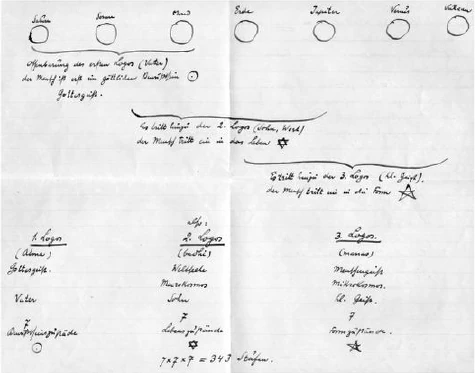 Saturn Sonne Mond Erde Jupiter Venus Vulkan
Offenbarung des ersten Logos (Vater)
der Mensch ist erst im göttlichen Bewußtsein
Gottesgeist.
Es tritt hinzu der 2. Logos (Sohn, Wort)
der Mensch tritt ein in das Leben
Es tritt hinzu der 3. Logos (hl. Geist).
der Mensch tritt ein in die Form
Also:
1. Logos 2. Logos 3. Logos.
(Atma) (budhi) (manas)
Gottesgeist. Weltseele Menschengeist
Makrokosmos Mikrokosmos
Vater Sohn hl. Geist.
7 7 7
Bewußtseinszustände Lebenszustände Formzustände.
7 x 7 x 7 = 343 Stufen.